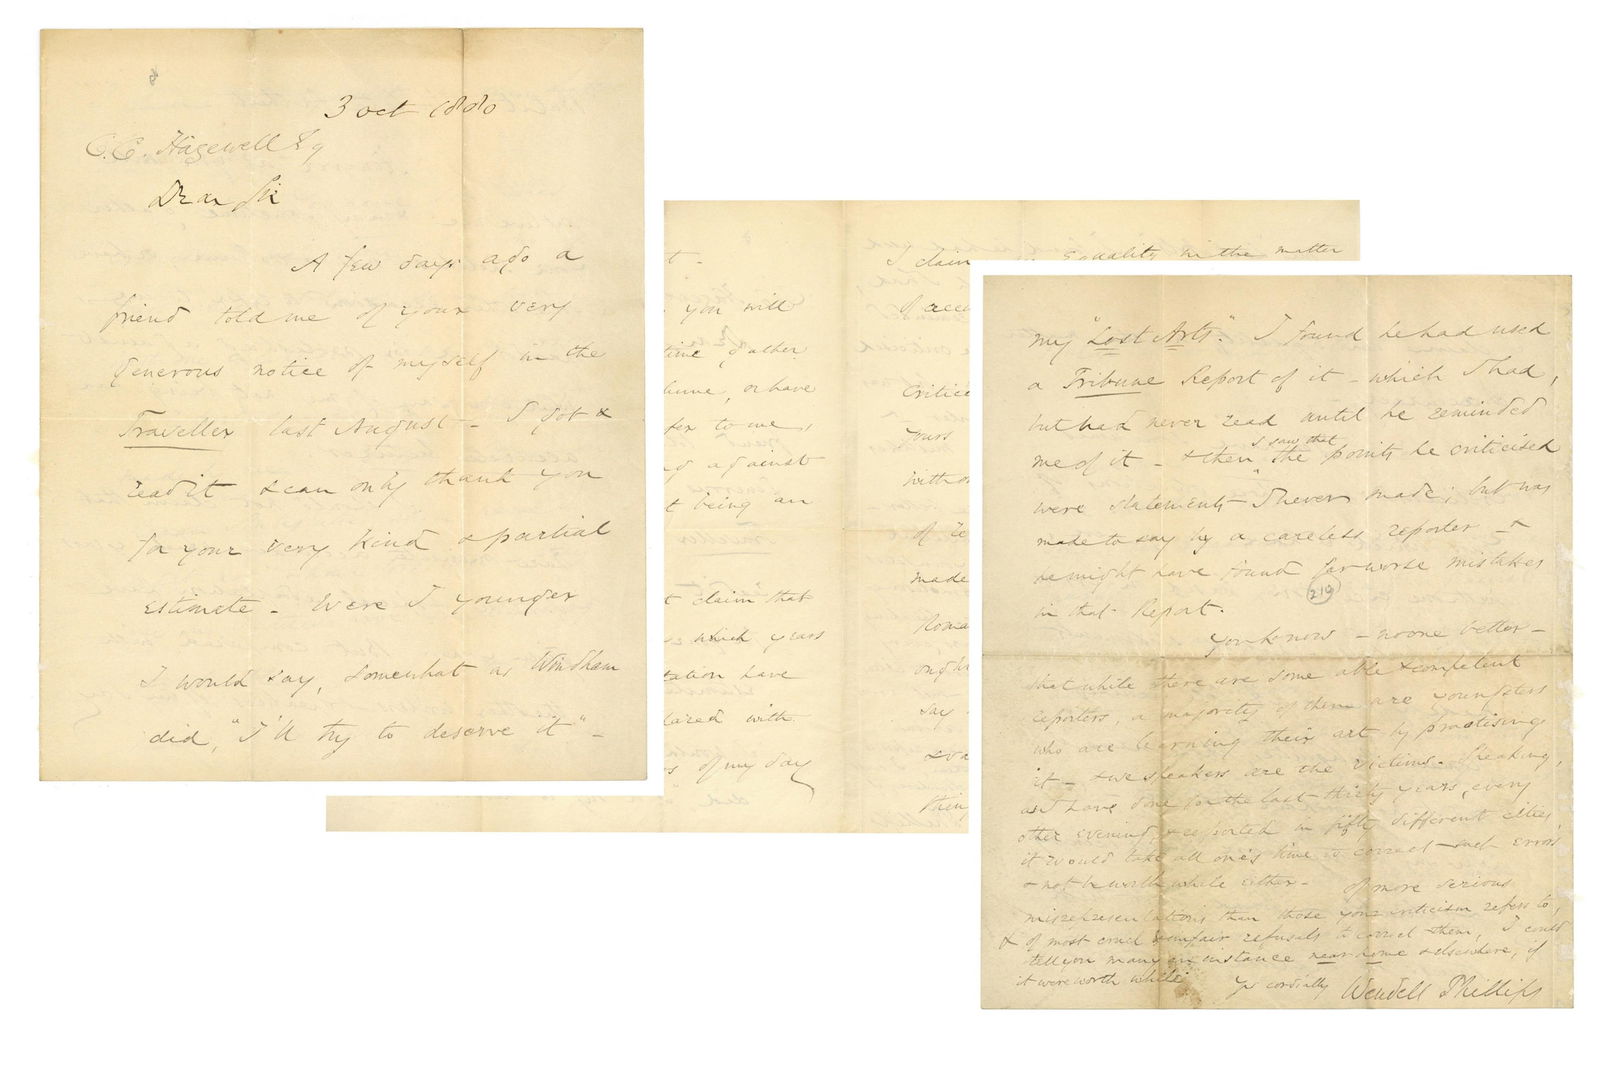 3 Oct 1880
C.C. Hazewell Esq
Dear Sir
A few days ago a
friend told me of your very
generous notice of myself in the
Traveller last August - I got &
read it & can only thank you
for your very kind & partial
estimate - Were I younger
I would say, somewhat as Windham
did, "I'll try to deserve it" -
t -
you will
time, I gather
or have
fer to me,
against
t being an
t claim that
which years
tation have
lared with
s of my day
I claim Equality in the matter
of acc
Critic
Yours
with o
of re
made
Roma
ough
say
& va
thin
my "Lost Arts." I found he had used
a Tribune Report of it - which I had,
but had never read until he reminded
me of it - & then I saw that the points he criticised
were statements I never made; but was
made to say by a careless reporter - &
he might have found far worse mistakes
219
in that Report.
You know - no one better -
that while there are some able & competent
reporters, a majority of them are youngsters
who are learning their art by practising
it - & we speakers are the victims. Speaking,
as I have done for the last thirty years, every
other evening, & reported in fifty different cities,
it would take all one's time to correct such errors
& not be worth while either - Of more serious
misrepresentations than those your criticism refers to,
& of most cruel & unfair refusals to correct them, I could
tell you many an instance near home & elsewhere, if
it were worth while.
Yrs cordially Wendell Phillips